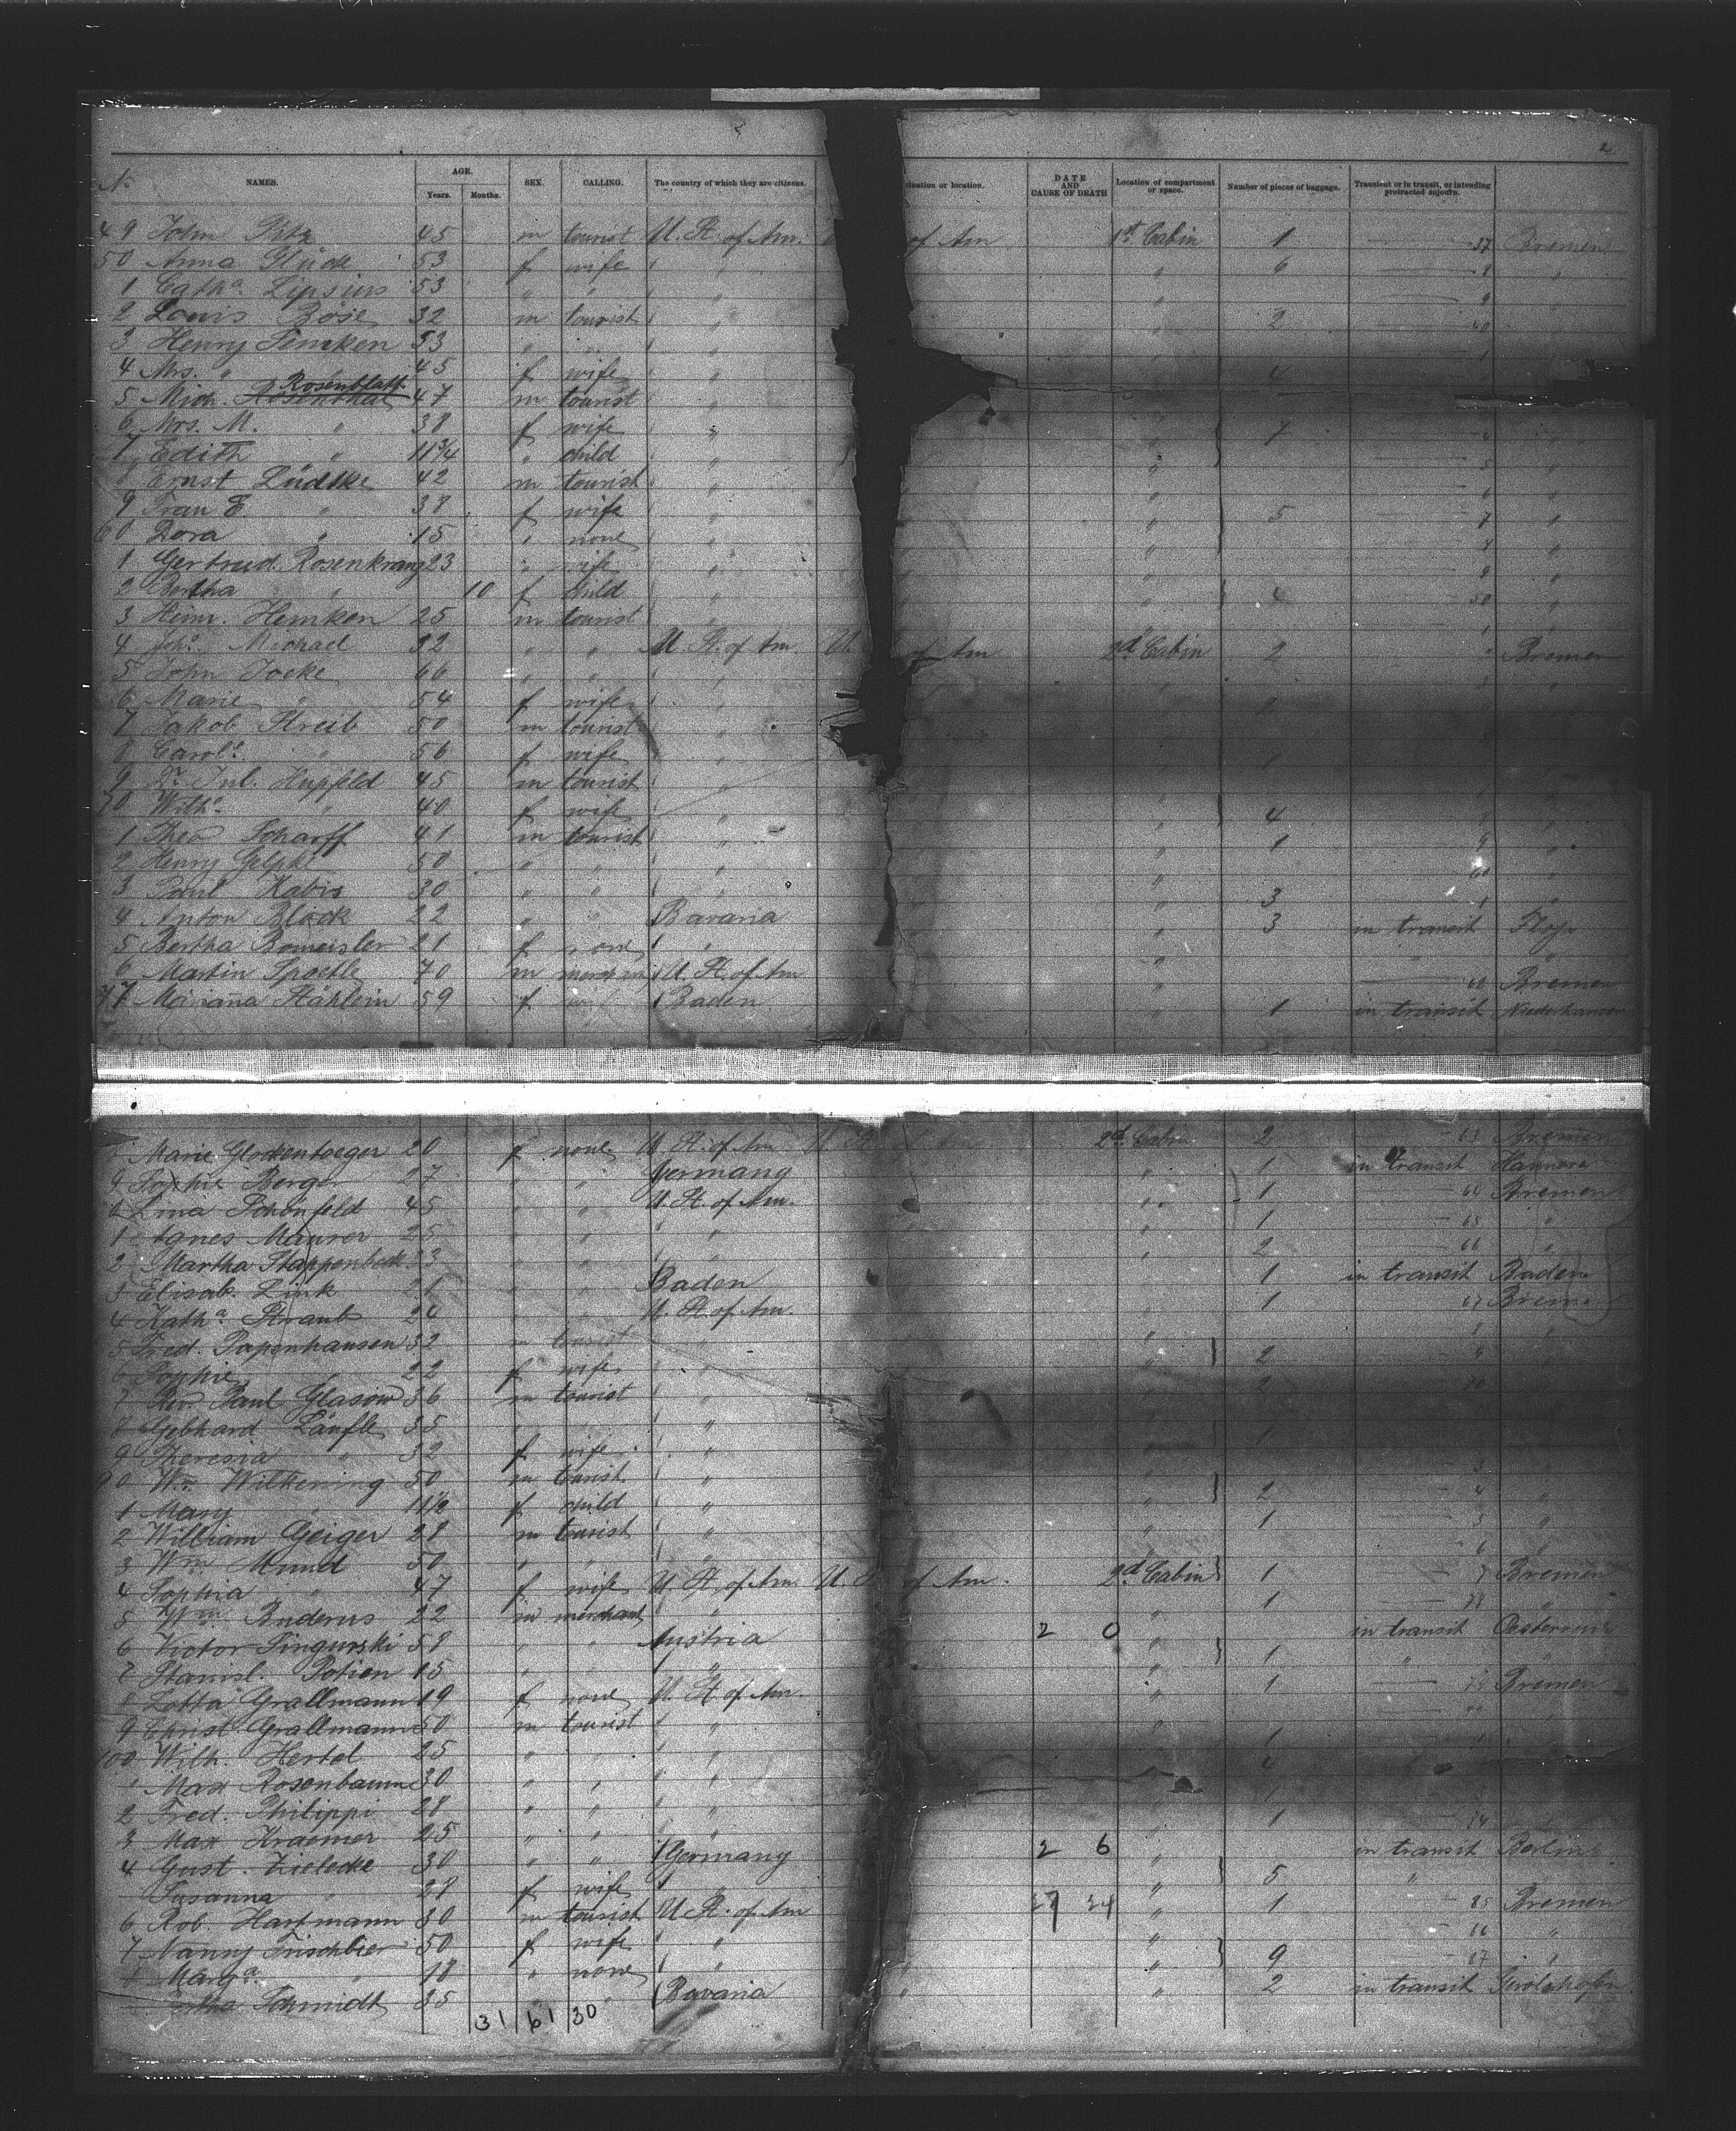 2
No. NAMES. AGE. Years. Months. SEX. CALLING. The country of which they are citizens. tination or location. DATE AND CAUSE OF DEATH Location of compartment or space. Number of pieces of baggage. Transient or in transit, or intending protracted sojourn.
49 John 45 m tourist U. St. of Am. of Am 1st Cabin 1 37 Bremen
50 Anna Glück 53 f wife " " 6 8 "
1 Cath.a Lipsius 53 " " " " 9 "
2 Louis Böse 32 m tourist " " 2 40 "
3 Henry Temken 53 " " " 1
4 Mrs. " 45 f wife " 4
5 Mich. Rosenblatt 47 m tourist "
6 Mrs. M. " 38 f wife " " 7 4 "
7 Edith " 11 3/4 " child " " 5 "
8 Ernst Lüdtke 42 m tourist " " 6 "
9 Frau E. " 38 f wife " " 5 7 "
60 Dora " 15 " none " " 8 "
1 Gertrud Rosenkranz 23 " wife " " 9 "
2 Bertha " 10 f child " " 4 50 "
3 Heinr. Hemken 25 m tourist " " 1 "
4 Joh.s Michael 32 " " U. St. of Am. U. of Am 2d Cabin 2 Bremen
5 John Focke 66 " " "
6 Marie " 54 f wife "
7 Jakob Streib 50 m tourist "
8 Carol.e " 56 f wife " 1
9 Dr. Jul. Hupfeld 45 m tourist "
70 Wilh.e " 40 f wife " " 4 "
1 Theo Scharff 41 m tourist " " 1 9 "
2 Henry 50 " " " " 60 "
3 Paul Kabis 30 " " " " 3 1 "
4 Anton Block 22 " " Bavaria " 3 in transit
5 Bertha Bomeisler 21 f none " " " "
6 Martin Spoehle 70 m merchant U. St. of Am " 62 Bremen
77 Mariana Stählein 59 f wife Baden " 1 in transit Niederhausen
Marie Glockentoeger 20 f none U. St. of Am U. St. of Am 2d Cabin 2 63 Bremen
9 Sophie Berger 27 " " Germany " 1 in transit Hannover
0 Lina Schönfeld 45 " " U. St. of Am. " 1 64 Bremen
1 Agnes Maurer 25 " " " " 1 65 "
2 Martha Stappenbeck 33 " " " " 2 66 "
3 Elisab. Link 21 " " Baden " 1 in transit Baden
4 Kath.a Straub 24 " " U. St. of Am. " 1 67 Bremen
5 Fred. Papenhausen 32 m tourist " " 8 "
6 Sophie " 22 f wife " " 2 9 "
7 Rev. Paul Glasow 36 m tourist " 2 70
8 Gebhard Läufle 35 " " "
9 Theresia " 32 f wife " 1
90 Wm. Wilkening 50 m tourist " 3 "
1 Mary " 11 1/2 f child " " 2 4 "
2 William Geiger 28 m tourist " " 1 5 "
3 Wm. Mund 50 " " " " 6 "
4 Sophia " 47 f wife U. St. of Am. U. St. of Am. 2d Cabin 1 7 Bremen
5 Wm. Buderus 22 m merchant " " 1 78 "
6 Victor Singurski 58 " " Austria 2 0 " in transit Oesterreich
7 Stanisl. Potien 15 " " " " 1 " "
8 Lotta Grallmann 19 f none U. St. of Am. " 1 79 Bremen
9 Christ. Grallmann 50 m tourist " "
100 Wilh. Hertel 25 " " " 1
1 Max Rosenbaum 30 " " " 4
2 Fred. Philippi 28 " " " " 1
3 Max Kraemer 25 " " " " 1 84 "
4 Gust. Zielecke 30 " " Germany 2 6 " in transit Berlin
Susanna " 28 f wife " " 5 " "
6 Rob. Hartmann 30 m tourist U. St. of Am 27 24 " 1 85 Bremen
7 Nanny Frischbier 50 f wife " " 86 "
8 Marg.a " 18 " none " " 9 87 "
Bertha Schmidt 35 " " Bavaria " " 2 in transit Gerolzhofen
31 61 30